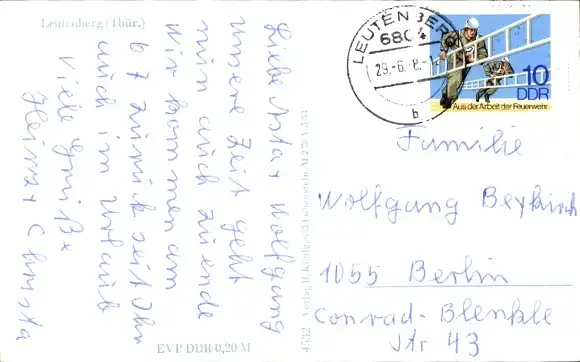 Leutenberg (Thür.)
Liebe Asta + Wolfgang
unsere Zeit geht
nun auch zu ende
wir kommen am
6 7 zurück seit Ihr
auch im Urlaub
Viele Grüße
Heinz + Christa
EVP DDR 0,20 M
4532 Verlag
LEUTENBERG
6804
29.-6.-8.-1
b
10
DDR
Aus der Arbeit der Feuerwehr
Familie
Wolfgang Beykirch
1055 Berlin
Conrad-Blenkle
Str 43